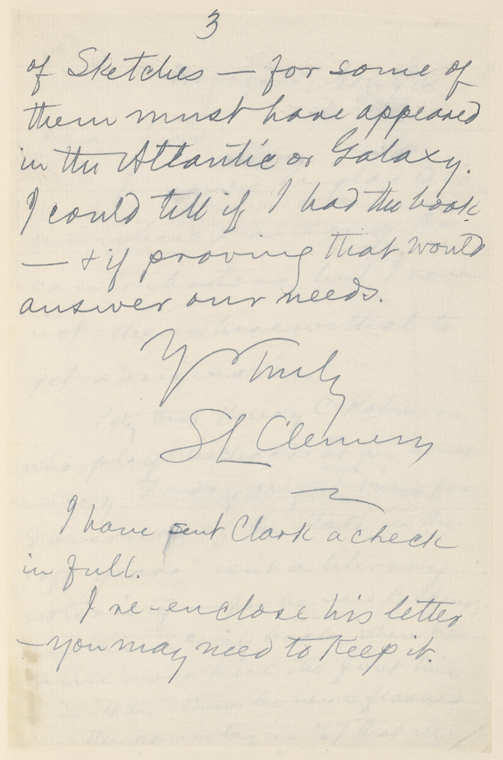 3
of Sketches — for some of
them must have appeared
in the Atlantic or Galaxy.
I could tell if I had the book
— & if proving that would
answer our needs.
Yr Truly
SL Clemens
I have sent Clark a check
in full.
I re-enclose his letter
— you may need to keep it.